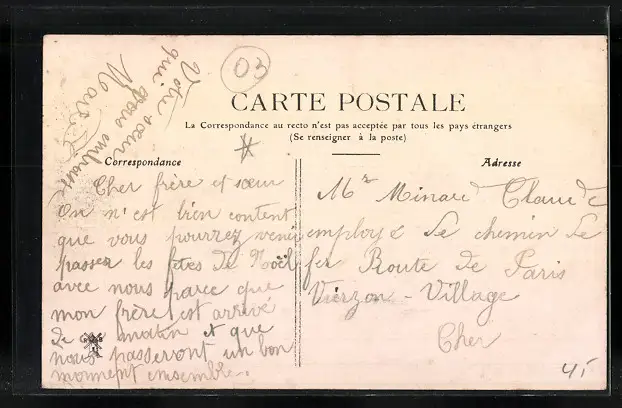 03
Votre sœur
qui vous embrasse
Marie
CARTE POSTALE
La Correspondance au recto n'est pas acceptée par tous les pays étrangers
(Se renseigner à la poste)
Correspondance
Cher frère et sœur
On n'est bien content
que vous pourrez venir
passer les fêtes de Noël
avec nous parce que
mon frère est arrivé
de ce matin et que
nous passeront un bon
monment ensemble.
Adresse
Mr Minard Claude
employé de chemin de
fer Route de Paris
Vierzon-Village
Cher
45